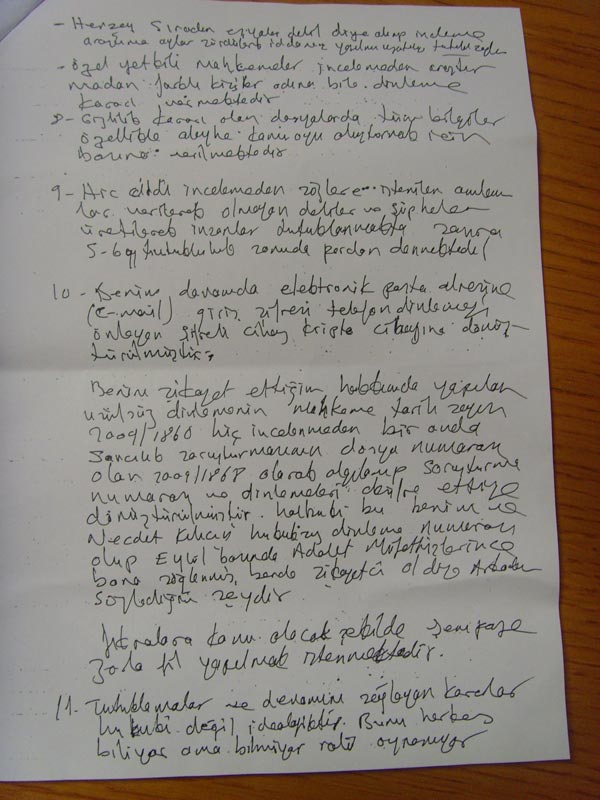 - Herşey Sıradan eşyalar delil diye alınıp inceleme
araştırma aylar sürdürülüp iddianız
- özel yetkili mahkemeler incelemeden araştır
madan farklı kişiler adına bile dinleme
Kararı vermektedir
8- Gizlilik kararı olan dosyalarda tüm bilgiler
özellikle aleyhe kamuoyu oluşturmak için
basına verilmektedir
9- Arc ciddi incelemeden istenilen anlam
lar verilerek olmayan deliller ve şüpheler
üretilerek insanlar tutuklanmakta sonra
5-6 ay tutukluluk sonunda pardon denmektedir
10- Benim davamda elektronik posta adresine
(e-mail) giriş şifresi telefon dinlemeyi
önleyen şifreli cihaz kripto cihazına dönüş-
türülmüştür.
Benim şikayet ettiğim hakkımda yapılan
dinlemenin mahkeme tarih sayısı
2009/1860 hiç incelenmeden bir anda
Sanculuk soruşturmanın dosya numarası
olan 2009/1868 olarak algılanıp Soruşturma
numarası ve dinlemeleri deşifre ettiye
dönüştürülmüştür. halbuki bu benim ve
Necdet Kılıcın hukuksuz dinleme numarası
olup Eylül basında Adalet Müfettişlerince
bana söylenmiş, bende şikayetçi oldığım
söylediğim şeydir
fıkralara konu olacak şekilde
zorla fil yapılmak istenmektedir.
11. Tutuklamalar ve devamını sağlayan kararlar
hukuki değil ideolojiktir. Bunu herkes
biliyor ama bilmiyor rolü oynanıyor